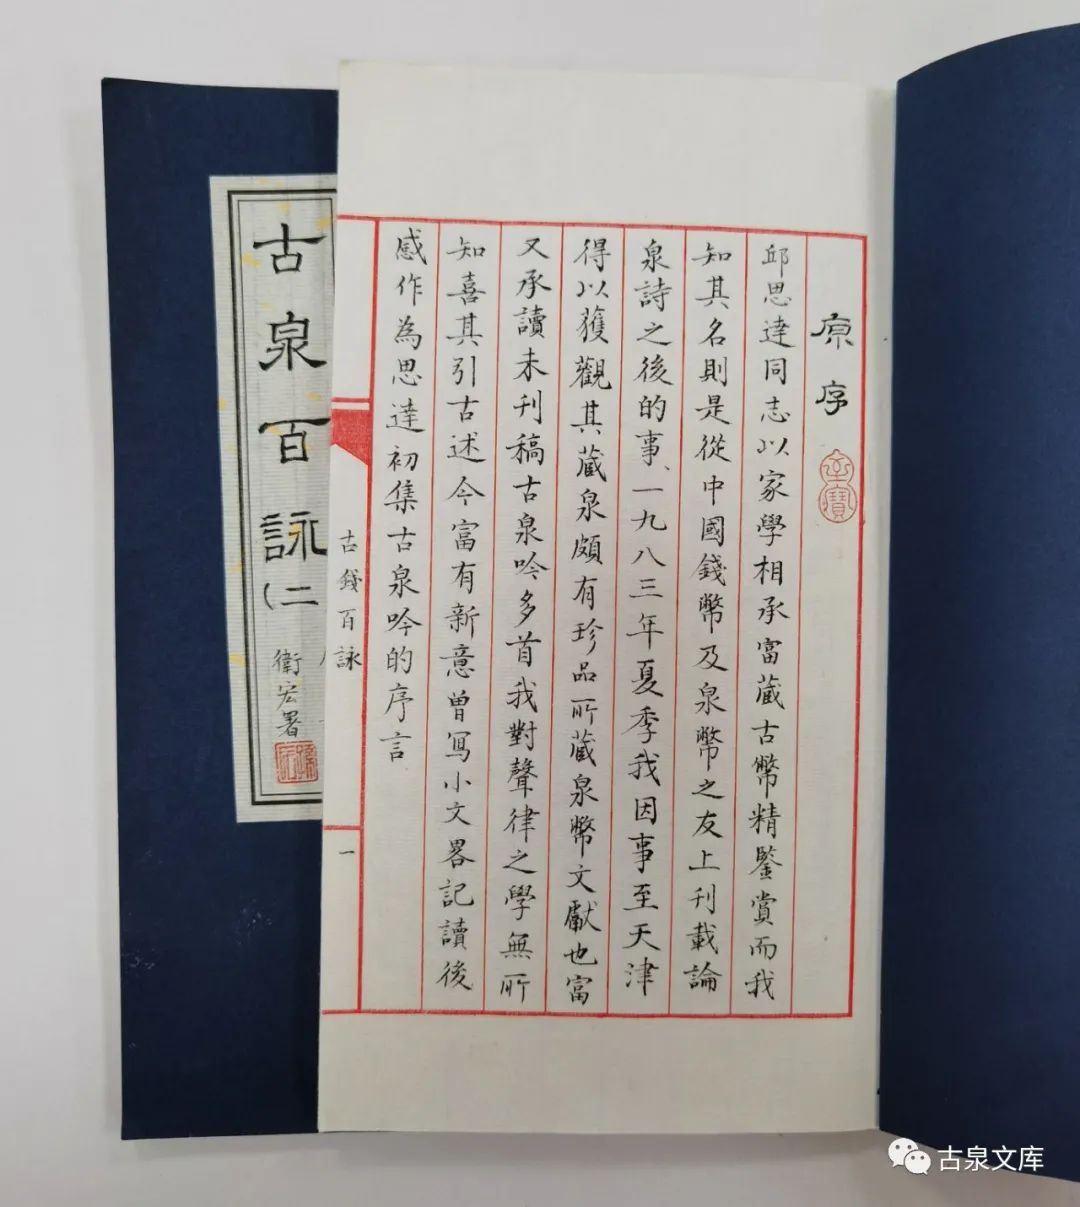 原序
邱思達同志以家學相承富藏古幣精鑒賞而我
知其名則是從中國錢幣及泉幣之友上刊載論
泉詩之後的事、一九八三年夏季我因事至天津
得以獲觀其藏泉頗有珍品所藏泉幣文獻也富
又承讀未刊稿古泉吟多首我對聲律之學無所
知喜其引古述今富有新意曾寫小文畧記讀後
感作為思達初集古泉吟的序言
古錢百詠
一
古泉百詠(二
衛宏署
古泉文库